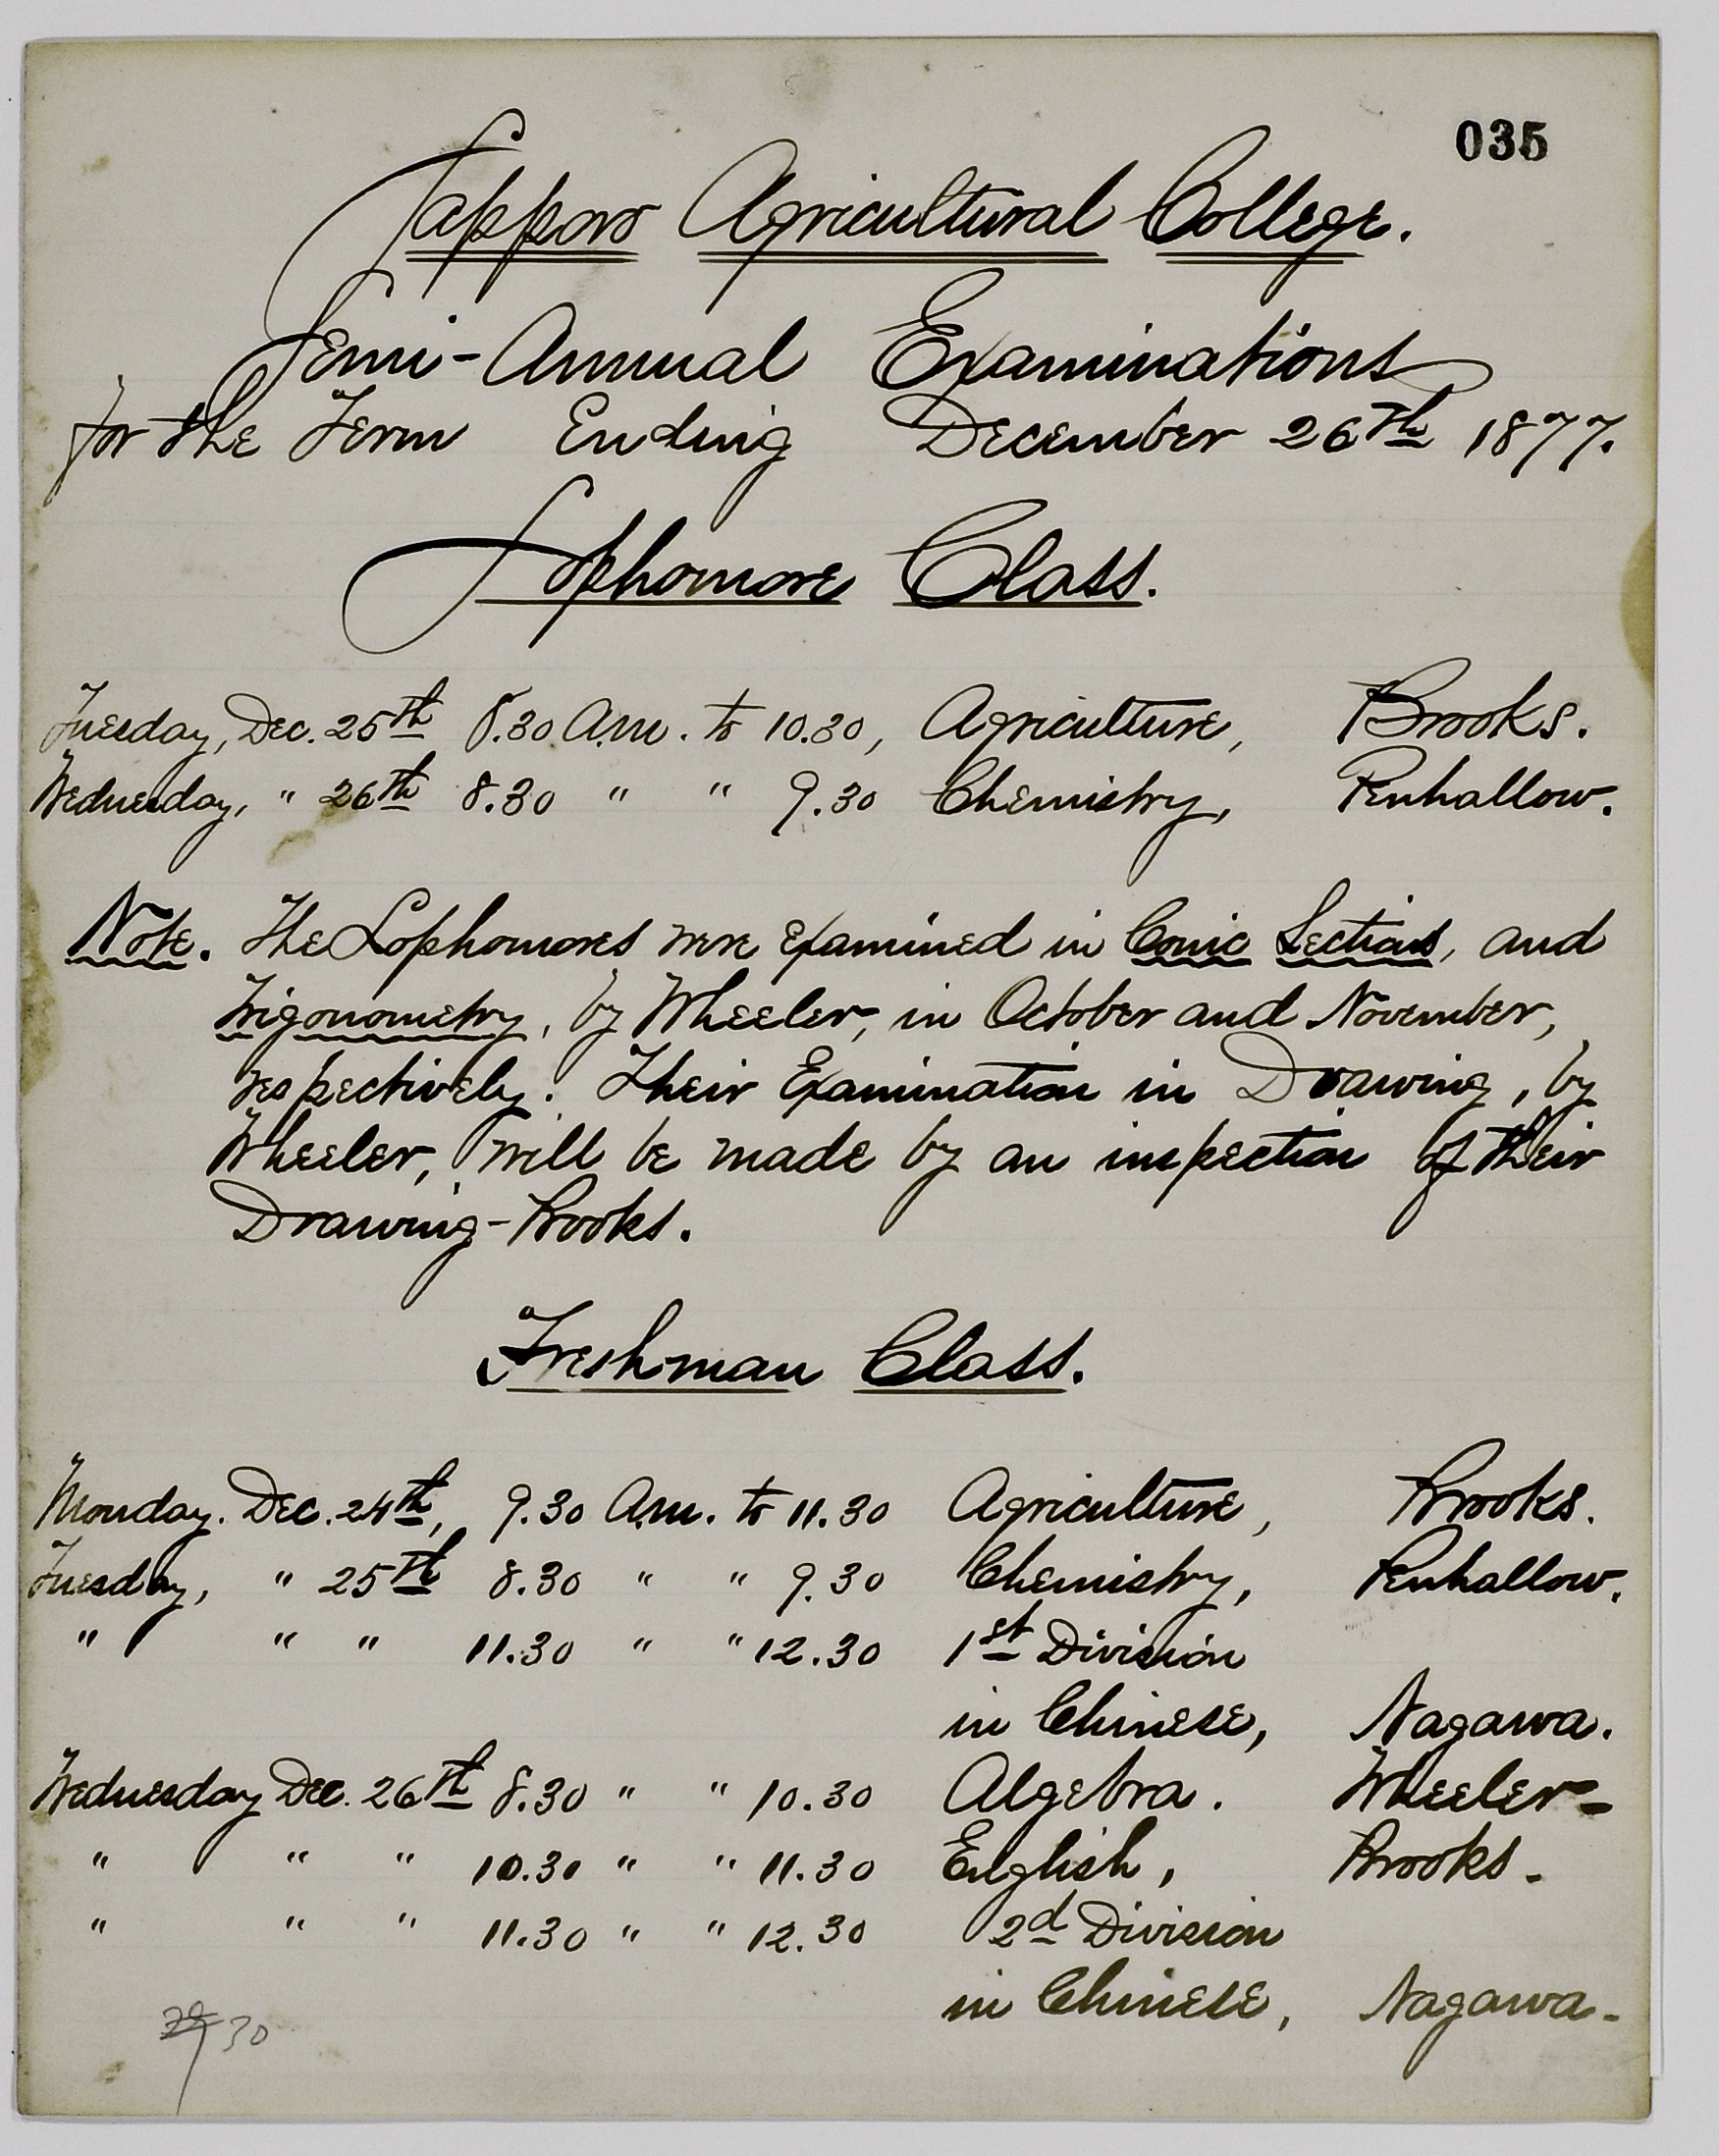 035
Sapporo Agricultural College.
Semi-Annual Examinations
for the Term Ending December 26th 1877.
Sophomore Class.
Tuesday, Dec. 25th 8.30 A.m. to 10.30, Agriculture, Brooks.
Wednesday, " 26th 8.30 " " 9.30 Chemistry, Penhallow.
Note. The Sophomores were examined in Conic Sections, and
Trigonometry, by Wheeler, in October and November,
respectively. Their Examination in Drawing, by
Wheeler, will be made by an inspection of their
Drawing-Books.
Freshman Class.
Monday. Dec. 24th, 9.30 A.m. to 11.30 Agriculture, Brooks.
Tuesday, " 25th 8.30 " " 9.30 Chemistry, Penhallow.
" " " 11.30 " " 12.30 1st Division
in Chinese, Nagawa.
Wednesday Dec. 26th 8.30 " " 10.30 Algebra. Wheeler-
" " " 10.30 " " 11.30 English, Brooks-
" " " 11.30 " " 12.30 2d Division
in Chinese, Nagawa-
30